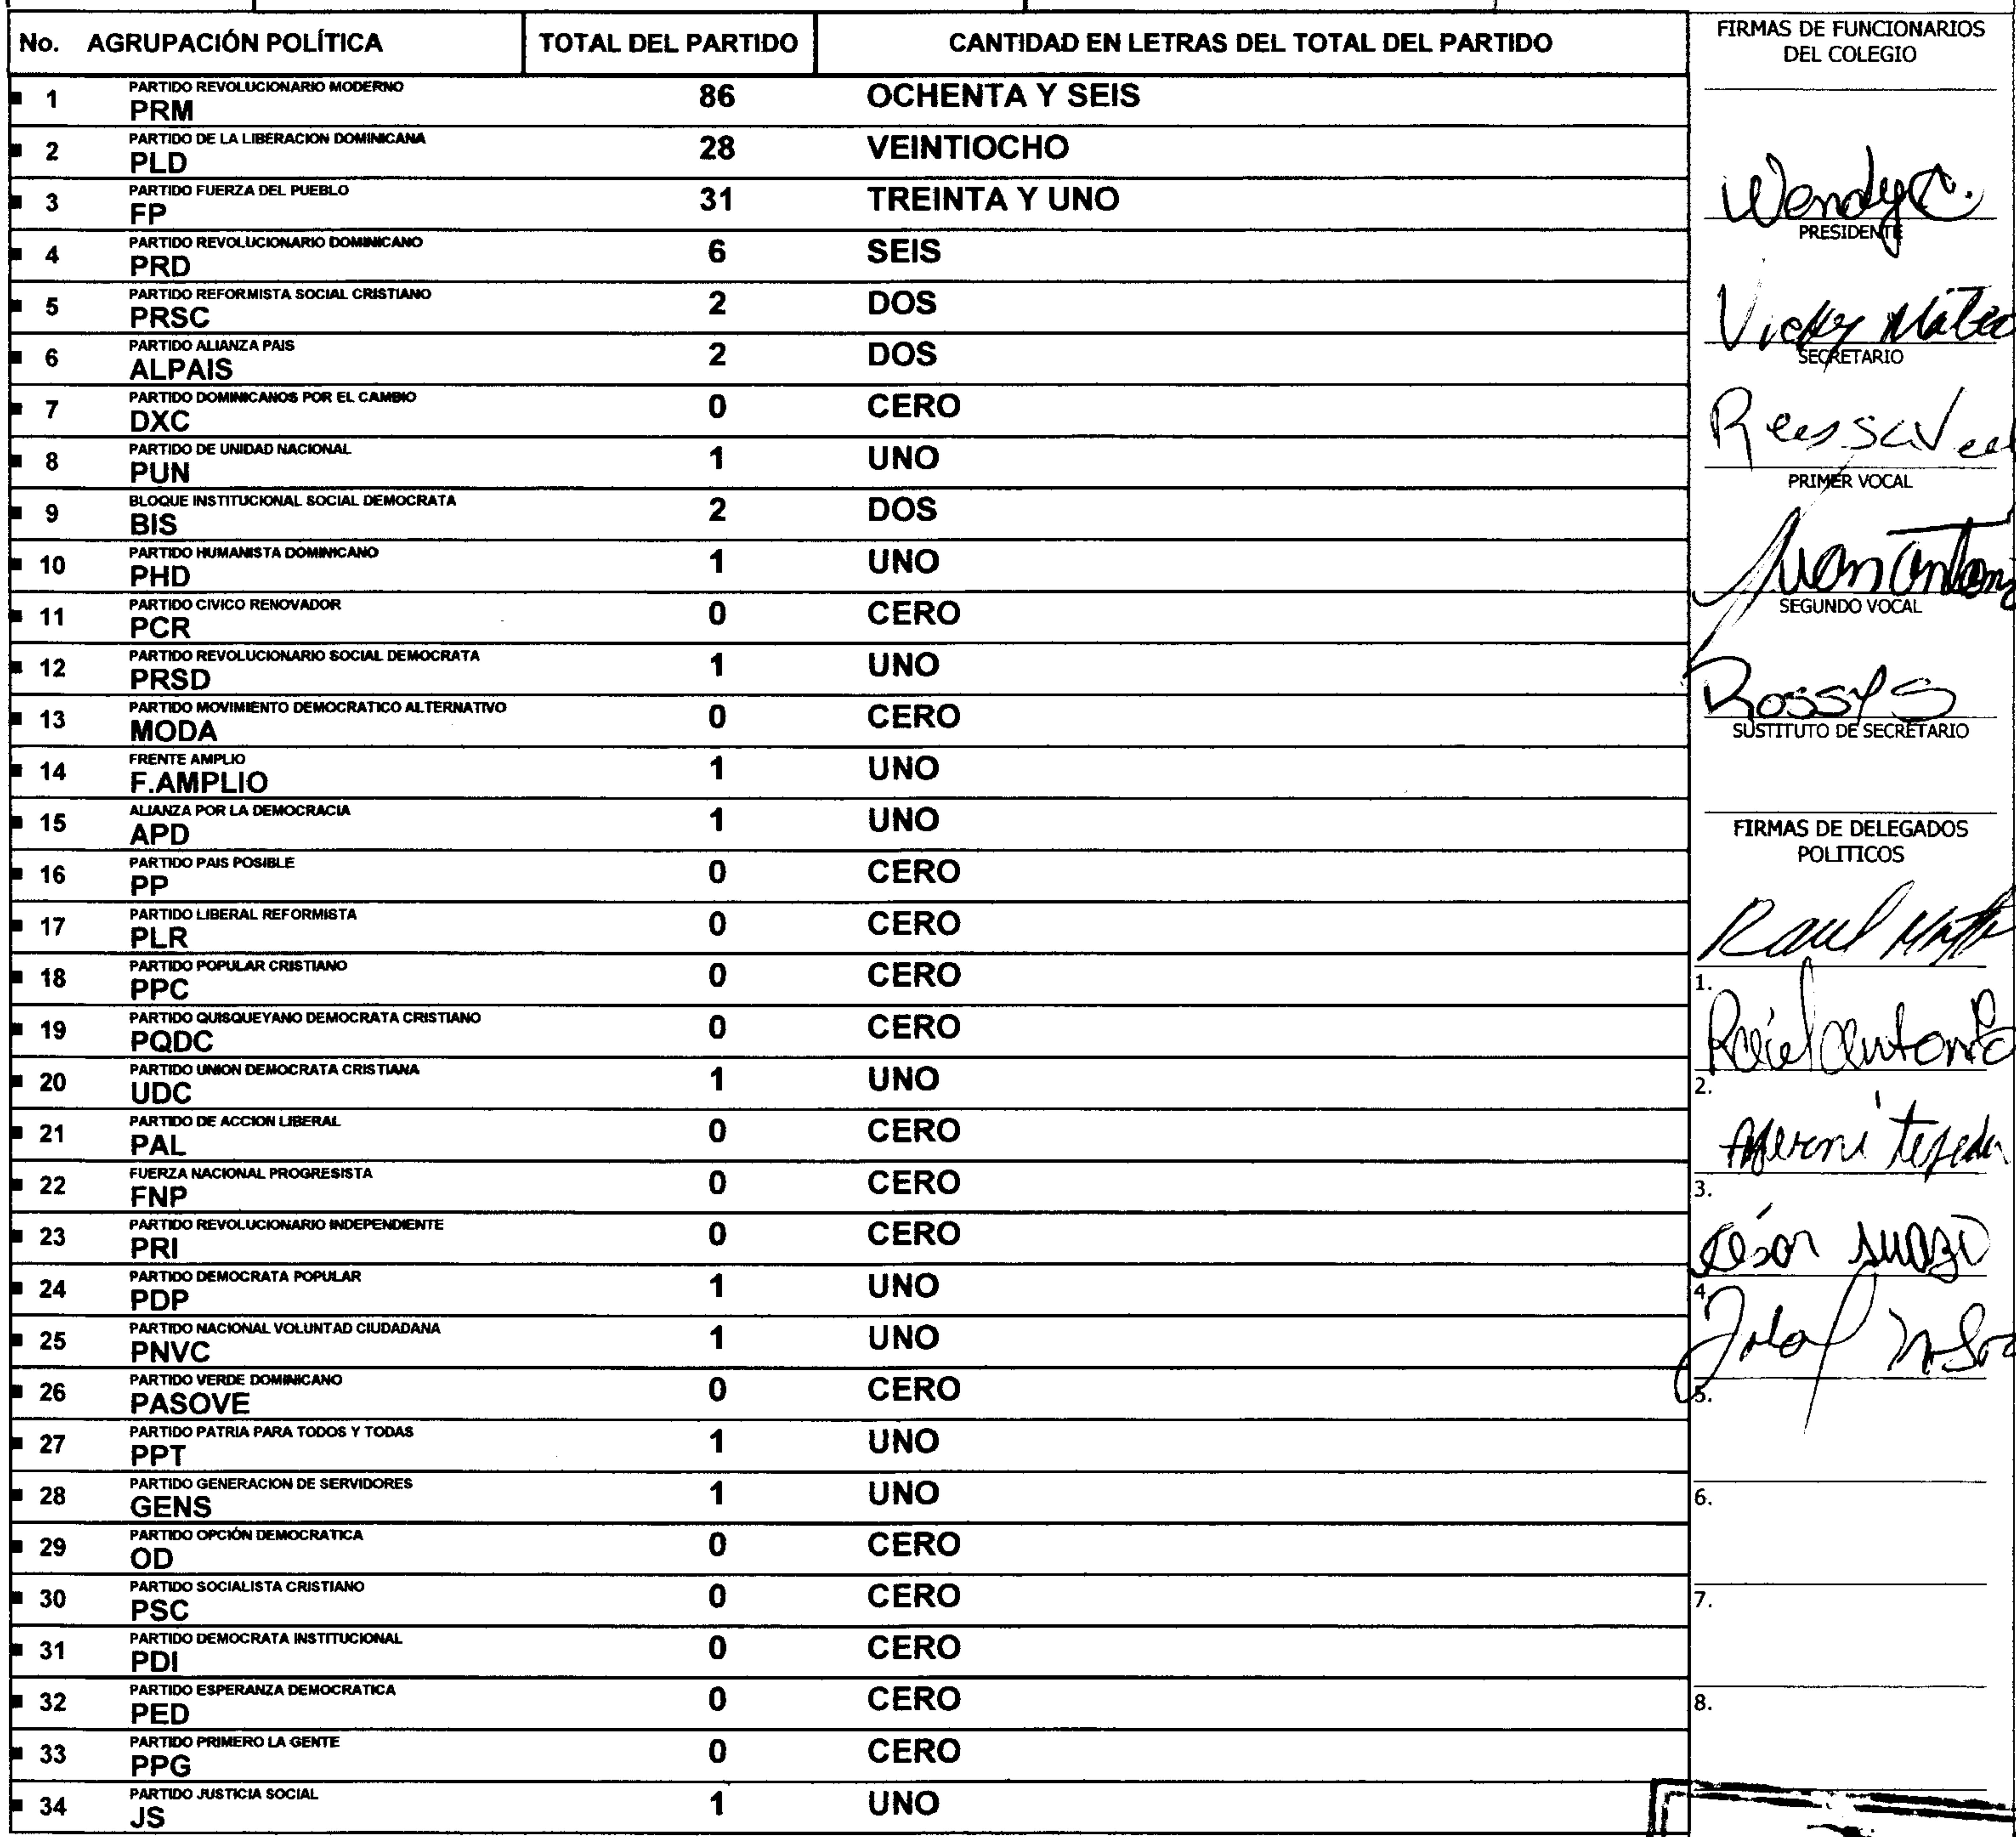 No. AGRUPACIÓN POLÍTICA TOTAL DEL PARTIDO CANTIDAD EN LETRAS DEL TOTAL DEL PARTIDO
1 PARTIDO REVOLUCIONARIO MODERNO
PRM 86 OCHENTA Y SEIS
2 PARTIDO DE LA LIBERACION DOMINICANA
PLD 28 VEINTIOCHO
3 PARTIDO FUERZA DEL PUEBLO
FP 31 TREINTA Y UNO
4 PARTIDO REVOLUCIONARIO DOMINICANO
PRD 6 SEIS
5 PARTIDO REFORMISTA SOCIAL CRISTIANO
PRSC 2 DOS
6 PARTIDO ALIANZA PAIS
ALPAIS 2 DOS
7 PARTIDO DOMINICANOS POR EL CAMBIO
DXC 0 CERO
8 PARTIDO DE UNIDAD NACIONAL
PUN 1 UNO
9 BLOQUE INSTITUCIONAL SOCIAL DEMOCRATA
BIS 2 DOS
10 PARTIDO HUMANISTA DOMINICANO
PHD 1 UNO
11 PARTIDO CIVICO RENOVADOR
PCR 0 CERO
12 PARTIDO REVOLUCIONARIO SOCIAL DEMOCRATA
PRSD 1 UNO
13 PARTIDO MOVIMIENTO DEMOCRATICO ALTERNATIVO
MODA 0 CERO
14 FRENTE AMPLIO
F.AMPLIO 1 UNO
15 ALIANZA POR LA DEMOCRACIA
APD 1 UNO
16 PARTIDO PAIS POSIBLE
PP 0 CERO
17 PARTIDO LIBERAL REFORMISTA
PLR 0 CERO
18 PARTIDO POPULAR CRISTIANO
PPC 0 CERO
19 PARTIDO QUISQUEYANO DEMOCRATA CRISTIANO
PQDC 0 CERO
20 PARTIDO UNION DEMOCRATA CRISTIANA
UDC 1 UNO
21 PARTIDO DE ACCION LIBERAL
PAL 0 CERO
22 FUERZA NACIONAL PROGRESISTA
FNP 0 CERO
23 PARTIDO REVOLUCIONARIO INDEPENDIENTE
PRI 0 CERO
24 PARTIDO DEMOCRATA POPULAR
PDP 1 UNO
25 PARTIDO NACIONAL VOLUNTAD CIUDADANA
PNVC 1 UNO
26 PARTIDO VERDE DOMINICANO
PASOVE 0 CERO
27 PARTIDO PATRIA PARA TODOS Y TODAS
PPT 1 UNO
28 PARTIDO GENERACION DE SERVIDORES
GENS 1 UNO
29 PARTIDO OPCIÓN DEMOCRATICA
OD 0 CERO
30 PARTIDO SOCIALISTA CRISTIANO
PSC 0 CERO
31 PARTIDO DEMOCRATA INSTITUCIONAL
PDI 0 CERO
32 PARTIDO ESPERANZA DEMOCRATICA
PED 0 CERO
33 PARTIDO PRIMERO LA GENTE
PPG 0 CERO
34 PARTIDO JUSTICIA SOCIAL
JS 1 UNO
FIRMAS DE FUNCIONARIOS
DEL COLEGIO
Wendy C.
PRESIDENTE
Vicky Mateo
SECRETARIO
PRIMER VOCAL
Juan Antonio
SEGUNDO VOCAL
Rossy S
SUSTITUTO DE SECRETARIO
FIRMAS DE DELEGADOS
POLITICOS
Raul
1.
2.
3.
César Suazo
4.
5.
6.
7.
8.